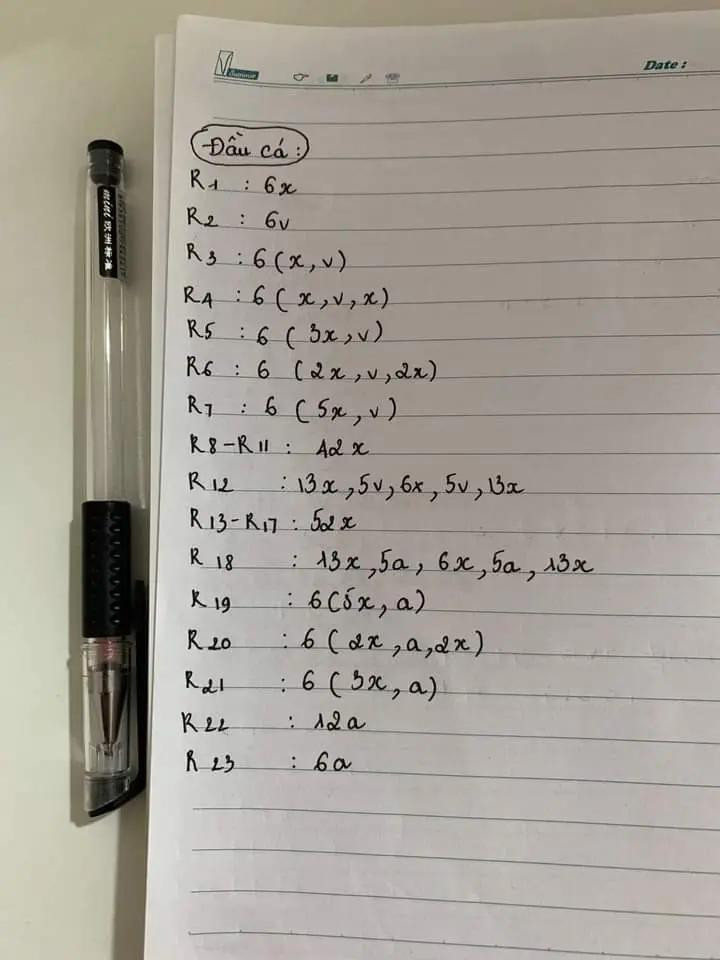 Date :
Đầu cá :
R1 : 6x
R2 : 6v
R3 : 6(x,v)
R4 : 6(x,v,x)
R5 : 6(3x,v)
R6 : 6 (2x,v,2x)
R7 : 6 (5x,v)
R8-R11 : 42x
R12 : 13x,5v,6x,5v,13x
R13-R17 : 52x
R18 : 13x,5a, 6x,5a,13x
R19 : 6(5x,a)
R20 : 6(2x,a,2x)
R21 : 6(3x,a)
R22 : 12a
R23 : 6a